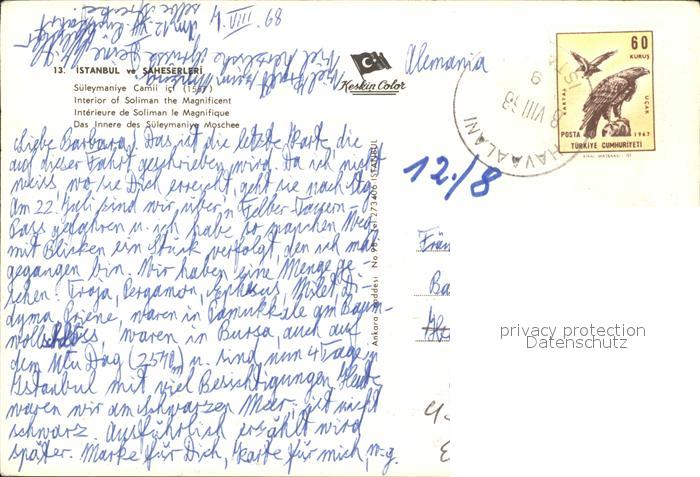 4. VIII. 68
13. ISTANBUL ve ŞAHESERLERİ
Süleymaniye Camii içi (1557)
Interior of Soliman the Magnificent
Intérieure de Soliman le Magnifique
Das Innere des Süleymaniye Moschee
Keskin Color
Alemania
60
KURUŞ
KARTAL
UÇAK
POSTA 1967
TÜRKİYE CUMHURİYETİ
HAVAALANI
8 VIII 68
12./8
Ankara Caddesi No 98, Tel 273406 ISTANBUL
Liebe Barbara! Das ist die letzte Karte, die
auf dieser Fahrt geschrieben wird. Da ich nicht
weiss, wo sie Dich erreicht, geht sie nach
Am 22. Juli sind wir über'n Felber-Tauern-
Pass gefahren u. ich habe so manchen Weg
mit Blicken ein Stück verfolgt, den ich mal
gegangen bin. Wir haben eine Menge ge-
sehen: Troja, Pergamon, Ephesus, Milet, Di-
dyma, Priene, waren in Pamukkale am Baum-
wollschloss, waren in Bursa, auch auf
dem Ulu Dag u. sind nun 4 Tage in
Istanbul mit viel Besichtigungen. Heute
waren wir am Schwarzen Meer; ist nicht
schwarz. Ausführlich erzählt wird
später. Marke für Dich, Karte für mich, w.g.
Frän
Ba
privacy protection
Datenschutz